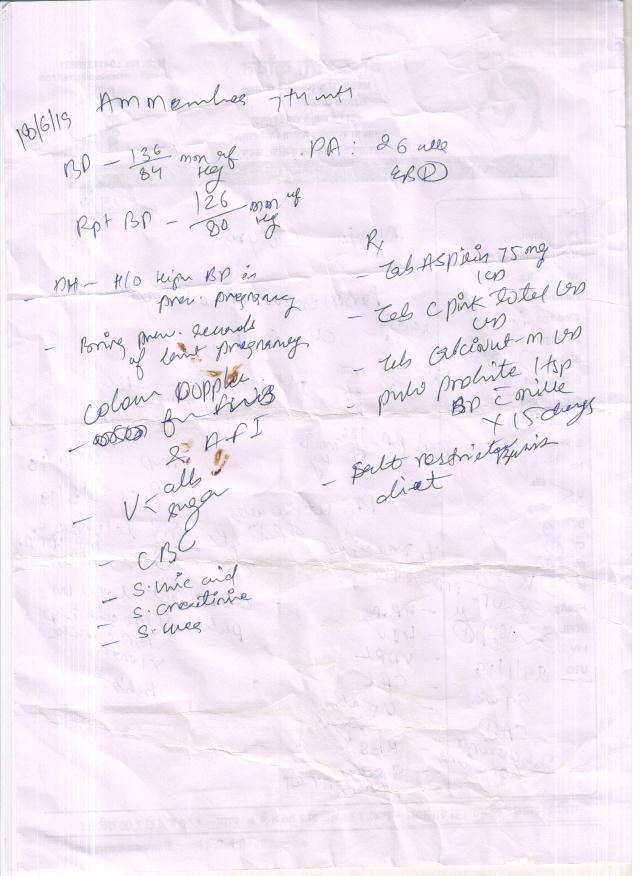 18/6/19
7th month
BP - 136/84 mm of Hg
PA: 26 week
Rpt BP - 126/80 mm of Hg
- PH - H/O High BP in
prev. pregnancy
- Bring prev. records
of last pregnancy
Colour Doppler
- for FWB
& AFI
- U < alb
sugar
- CBC
- S. uric acid
- S. creatinine
- S. urea
Rx
- Tab ASPirin 75 mg
- Tab C pink Total OD
OD
- Tab - M OD
- 1 tsp
BD c milk
x 15 days
- Salt restricted
diet